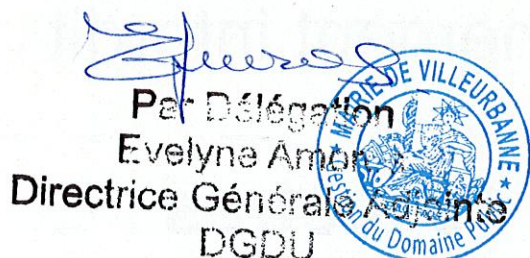 Par Délégation
Evelyne Amon
Directrice Générale Adjointe
DGDU
MAIRIE DE VILLEURBANNE
Gestion du Domaine Public